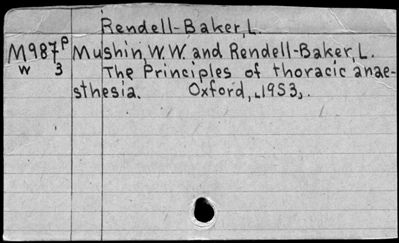 Rendell-Baker, L.
M987P Mushin, W.W. and Rendell-Baker, L.
w 3 The Principles of thoracic anae-
sthesia. Oxford, [1953].